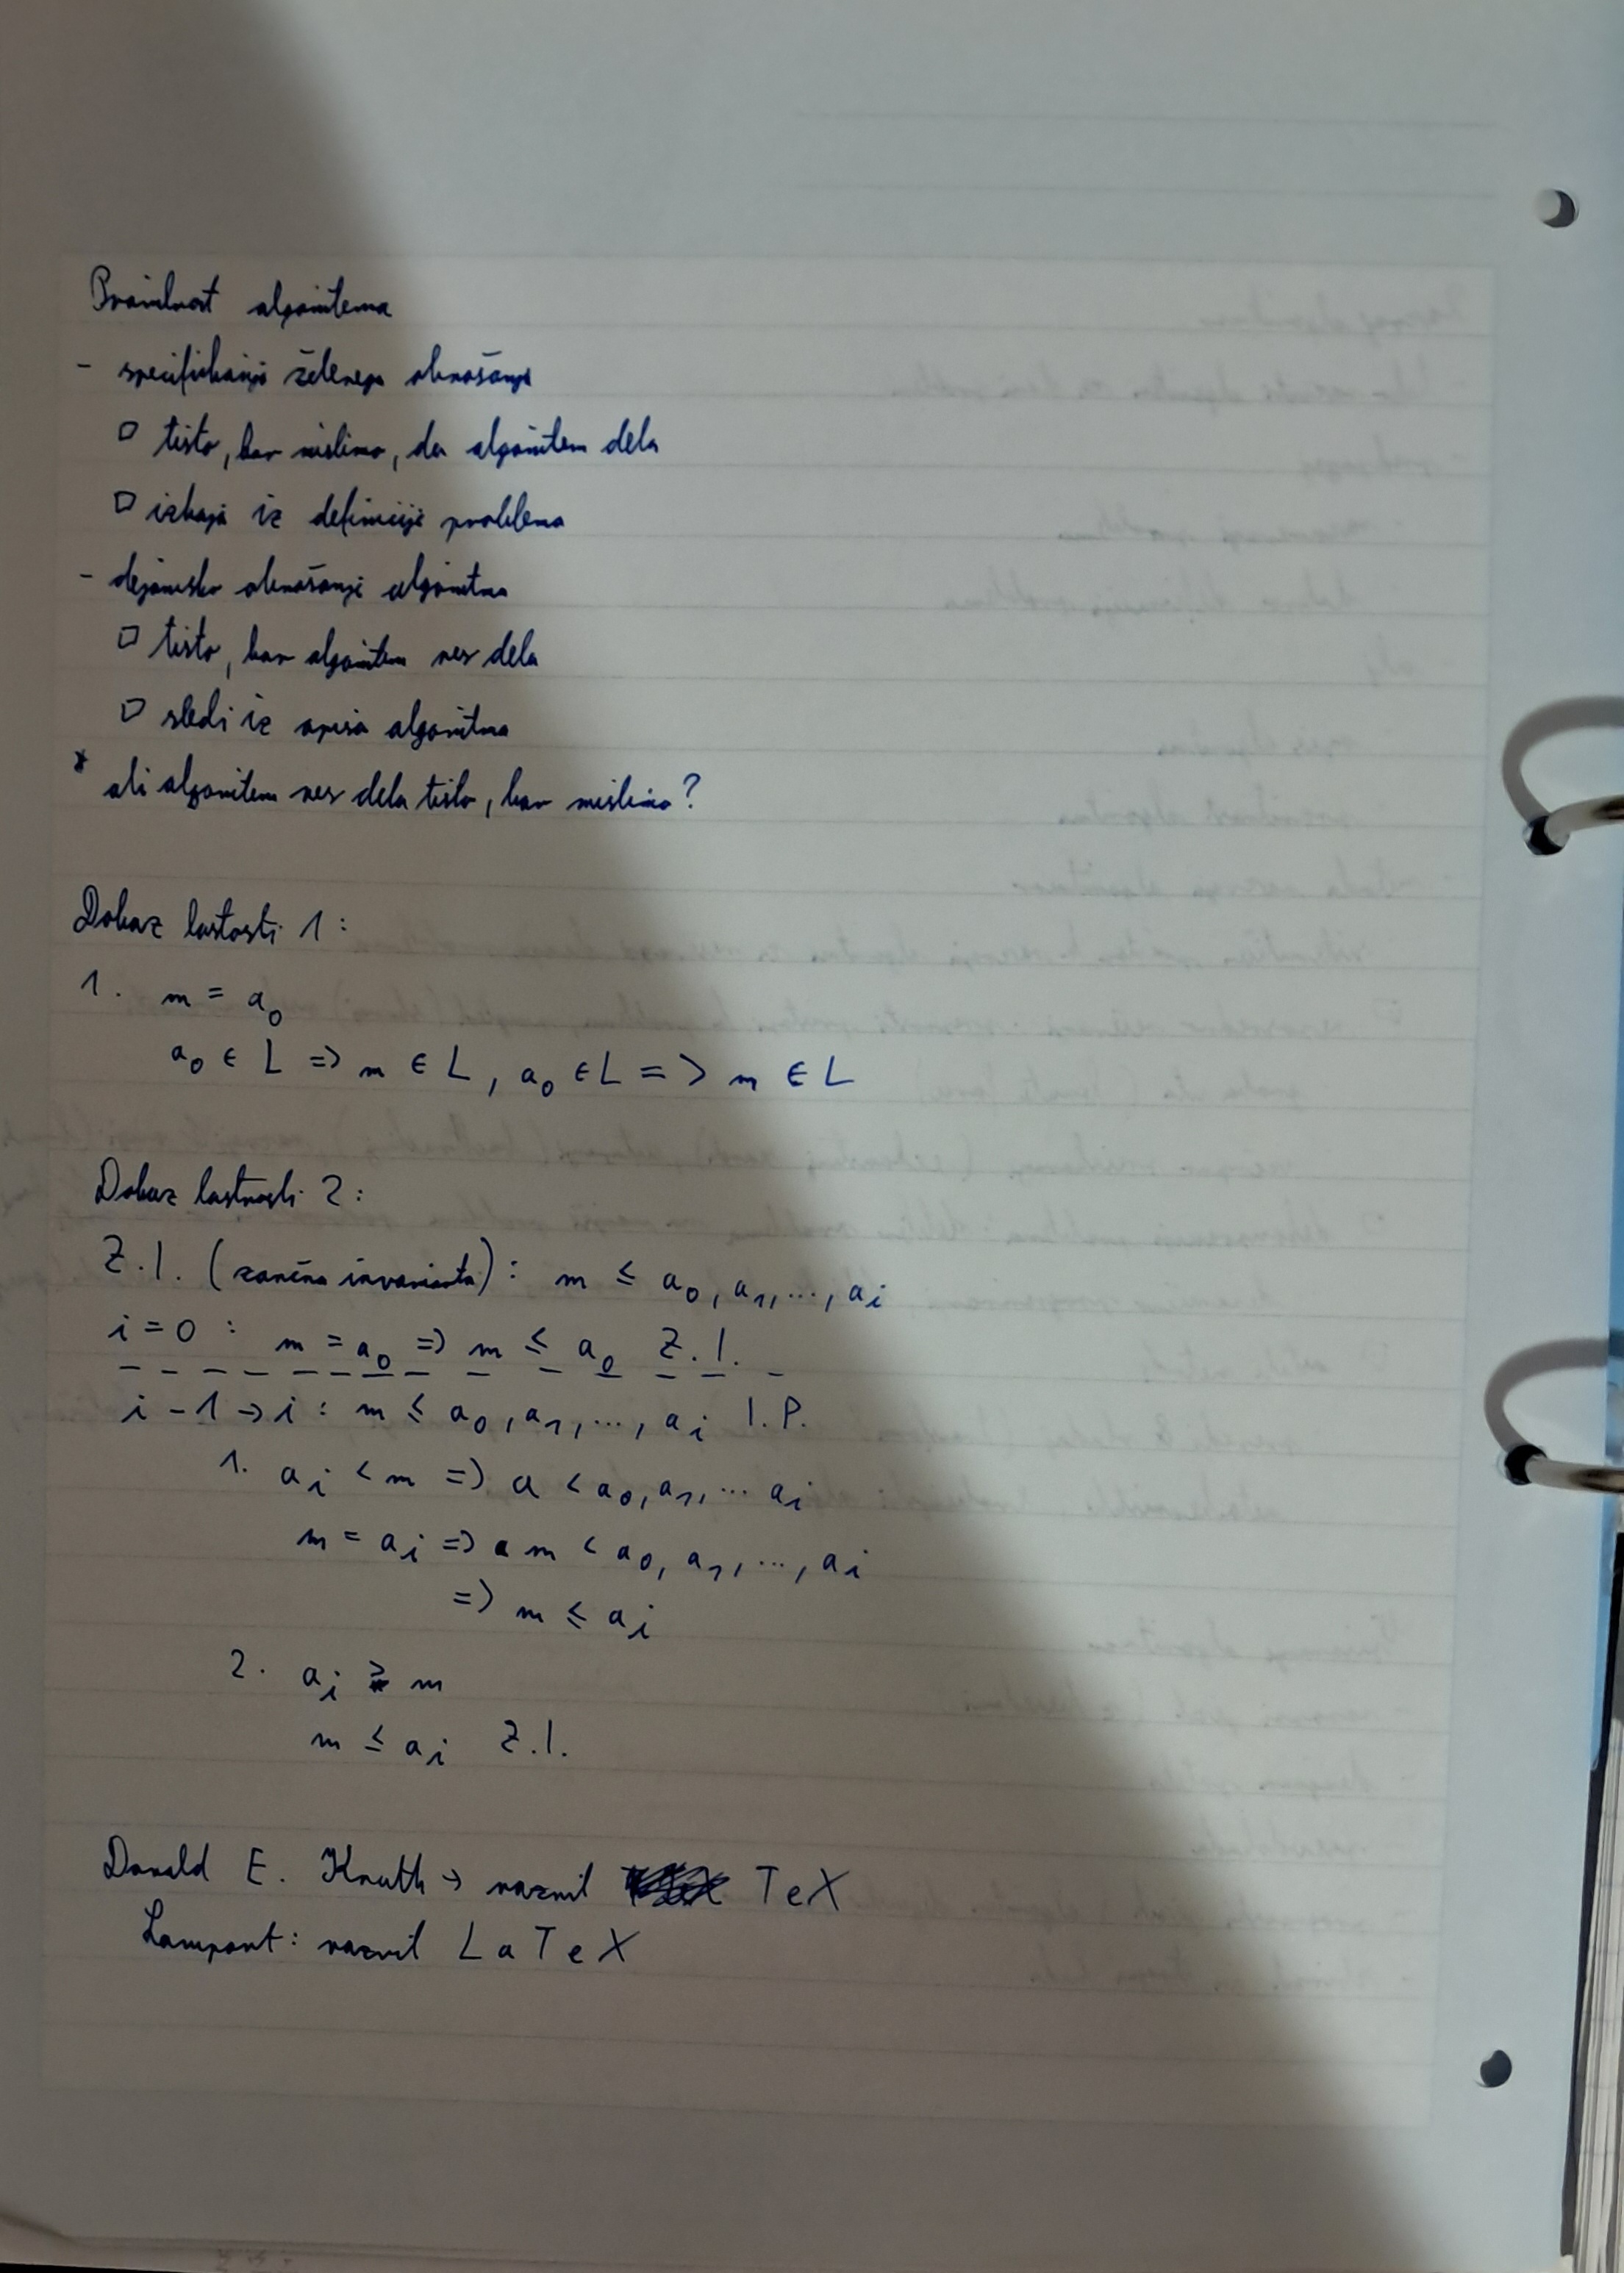 Pravilnost algoritema
- specifikacija želenega obnašanja
▫ tisto, kar mislimo, da algoritem dela
▫ izhaja iz definicije problema
- dejansko obnašanje algoritma
▫ tisto, kar algoritem res dela
▫ sledi iz opisa algoritma
* ali algoritem res dela tisto, kar mislimo?
Dokaz lastosti 1:
1. m = a₀
a₀ ∈ L => m ∈ L, a₀ ∈ L => m ∈ L
Dokaz lastnosti 2:
Z.I. (zančna invarianta): m ≤ a₀, a₁, ..., aᵢ
i = 0 : m = a₀ => m ≤ a₀ Z.I.
i - 1 → i : m ≤ a₀, a₁, ..., aᵢ I.P.
1. aᵢ < m => a < a₀, a₁, ... aᵢ
m = aᵢ => m < a₀, a₁, ..., aᵢ
=> m ≤ aᵢ
2. aᵢ ≥ m
m ≤ aᵢ Z.I.
Donald E. Knuth → razvil TeX
Lamport: razvil LaTeX